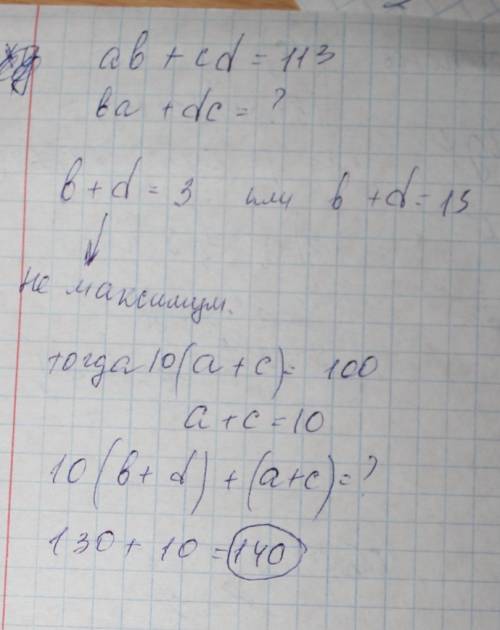 ав + cd = 113
ва + dc = ?
в + d = 3 или в + d = 13
не максимум.
тогда 10(а + с) = 100
а + с = 10
10(в + d) + (а+с) = ?
130 + 10 = 140